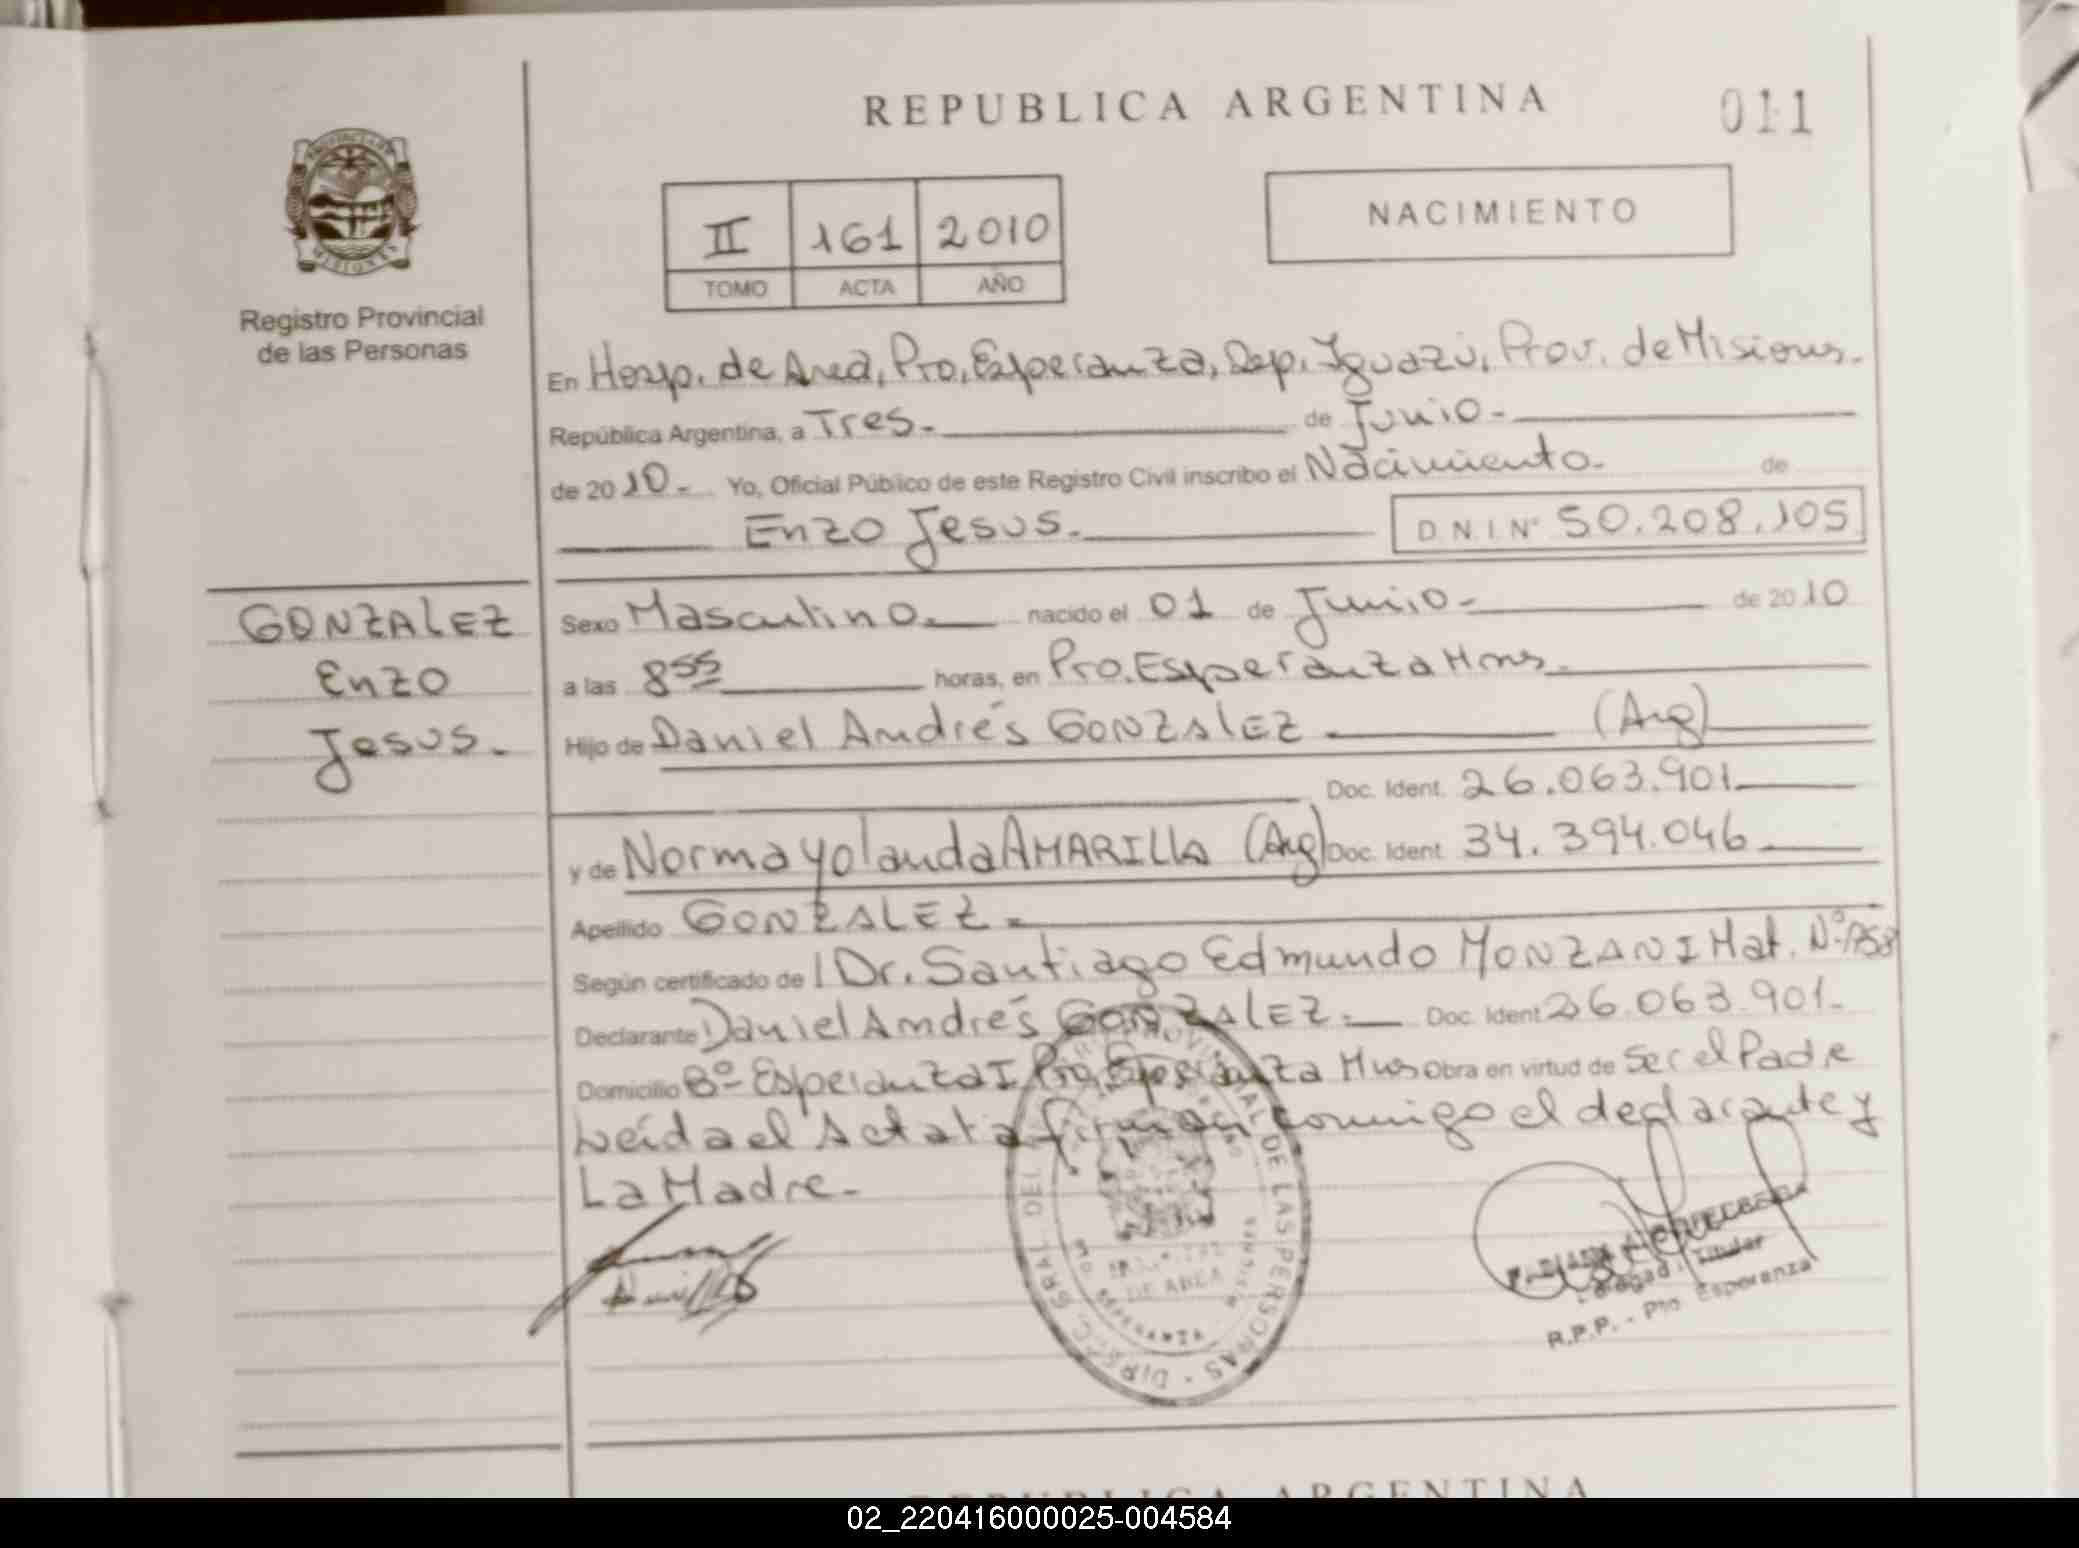 REPUBLICA ARGENTINA
011
PROVINCIA DE
MISIONES
Registro Provincial
de las Personas
II 161 2010
TOMO ACTA AÑO
NACIMIENTO
En Hosp. de Area, Pto, Esperanza, Dep. Iguazú, Prov. de Misiones.
República Argentina, a Tres.- de Junio-
de 2010.- Yo, Oficial Público de este Registro Civil inscribo el Nacimiento.- de
Enzo Jesus.- D.N.I. Nº 50.208.105
GONZALEZ
Enzo
Jesus.-
Sexo Masculino.- nacido el 01 de Junio- de 2010
a las 8⁵⁵ horas, en Pto. Esperanza Mnes.
Hijo de Daniel Andrés GONZALEZ (Arg)
Doc. Ident. 26.063.901
y de Norma Yolanda AMARILLA (Arg) Doc. Ident 34.394.046
Apellido GONZALEZ.-
Según certificado de Dr. Santiago Edmundo MONZANI Mat. Nº
Declarante Daniel Andrés GONZALEZ.- Doc. Ident 26.063.901.-
Domicilio Bº Esperanza I Pto. Esperanza Mnes Obra en virtud de Ser el Padre
Leída el Acta la firman conmigo el declarante y
La Madre.-
DIREC. GRAL. DEL REG. PROVINCIAL DE LAS PERSONAS
DE AREA
Titular
R.P.P. - Pto. Esperanza
REPUBLICA ARGENTINA
02_220416000025-004584